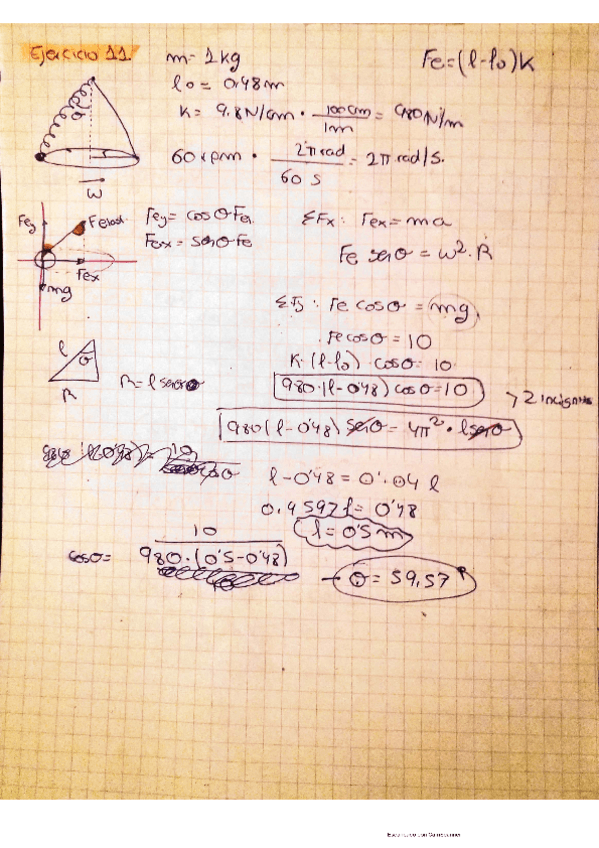 Ejercicio 11. m = 1kg Fe = (l-lo)K
lo = 0'48m
K = 9.8N/cm · 100cm/1m = 980N/m
60 rpm · 2π rad/60 s = 2π rad/s.
θ
w
Fey Felast. Fey = cosθFe ΣFx: Fex = ma
Fex = senθFe
Fe senθ = ω²·R
Fex
mg
ΣFy: Fe cosθ = mg
Fe cosθ = 10
l θ K·(l-lo) cosθ = 10
R R = l senθ 980·(l-0'48) cosθ = 10
2 incognitas
980(l-0'48) senθ = 4π²·l senθ
l-0'48 = 0'04 l
0.9597 l = 0'48
l = 0'5 m
cosθ = 10/980·(0'5-0'48)
→ θ = 59,57º
Escaneado con CamScanner